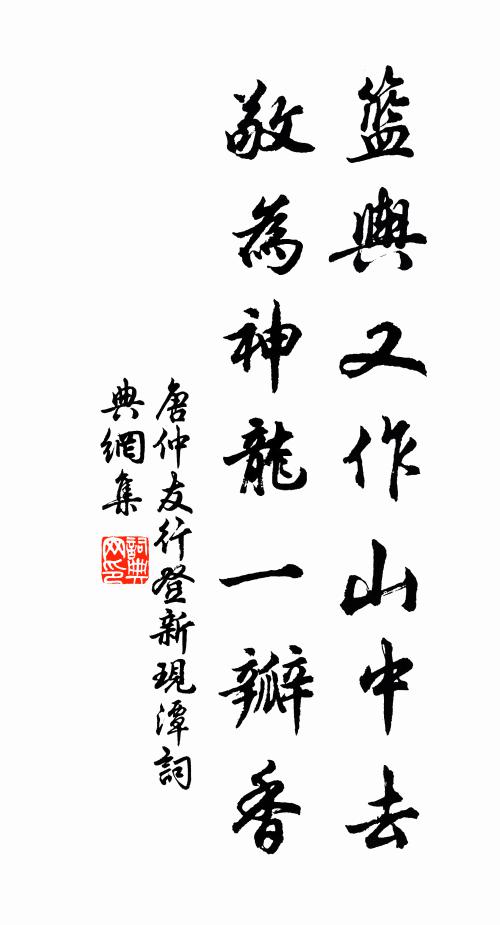 籃輿又作山中去
敬為神龍一瓣香
唐仲友行登新現潭詞
典網集
詞典網印